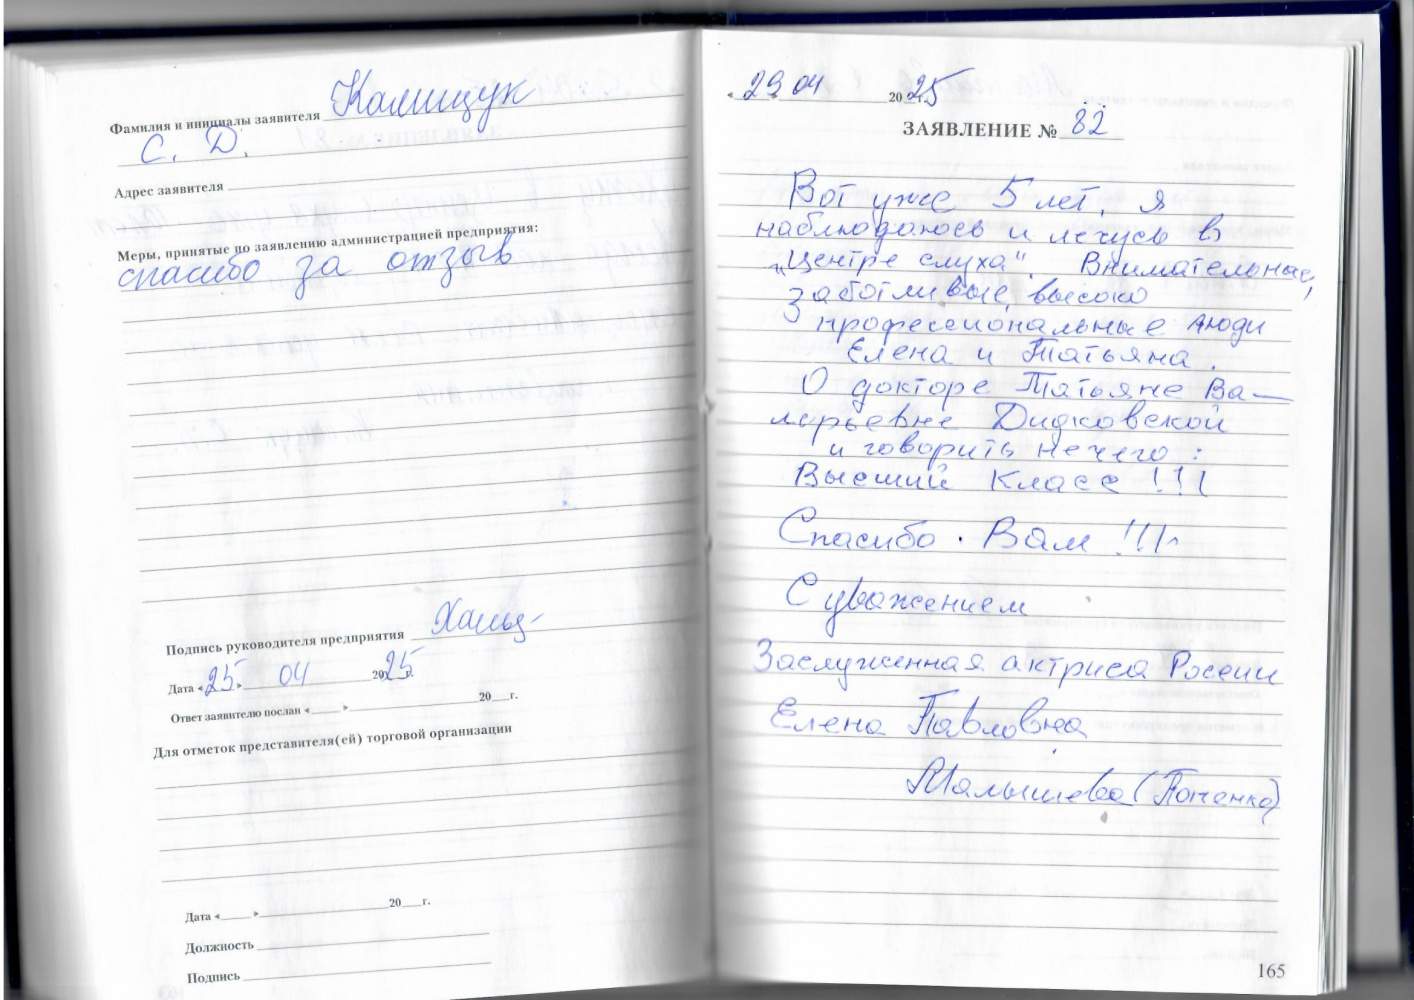 Фамилия и инициалы заявителя Калищук
С. Д.
Адрес заявителя
Меры, принятые по заявлению администрацией предприятия:
спасибо за отзыв
Подпись руководителя предприятия
Дата «25» 04 2025г.
Ответ заявителю послан «____» ____ 20__г.
Для отметок представителя(ей) торговой организации
Дата «____» ____ 20__г.
Должность
Подпись
«29 04 2025г.
ЗАЯВЛЕНИЕ № 82
Вот уже 5 лет, я
наблюдаюсь и лечусь в
„Центре слуха". Внимательные,
заботливые, высоко
профессиональные люди
Елена и Татьяна.
О докторе Татьяне Ва-
лерьевне Дидковской
и говорить нечего:
Высший Класс !!!
Спасибо Вам !!!
С уважением
Заслуженная актриса России
Елена Павловна
Малышева (Потенко)
165